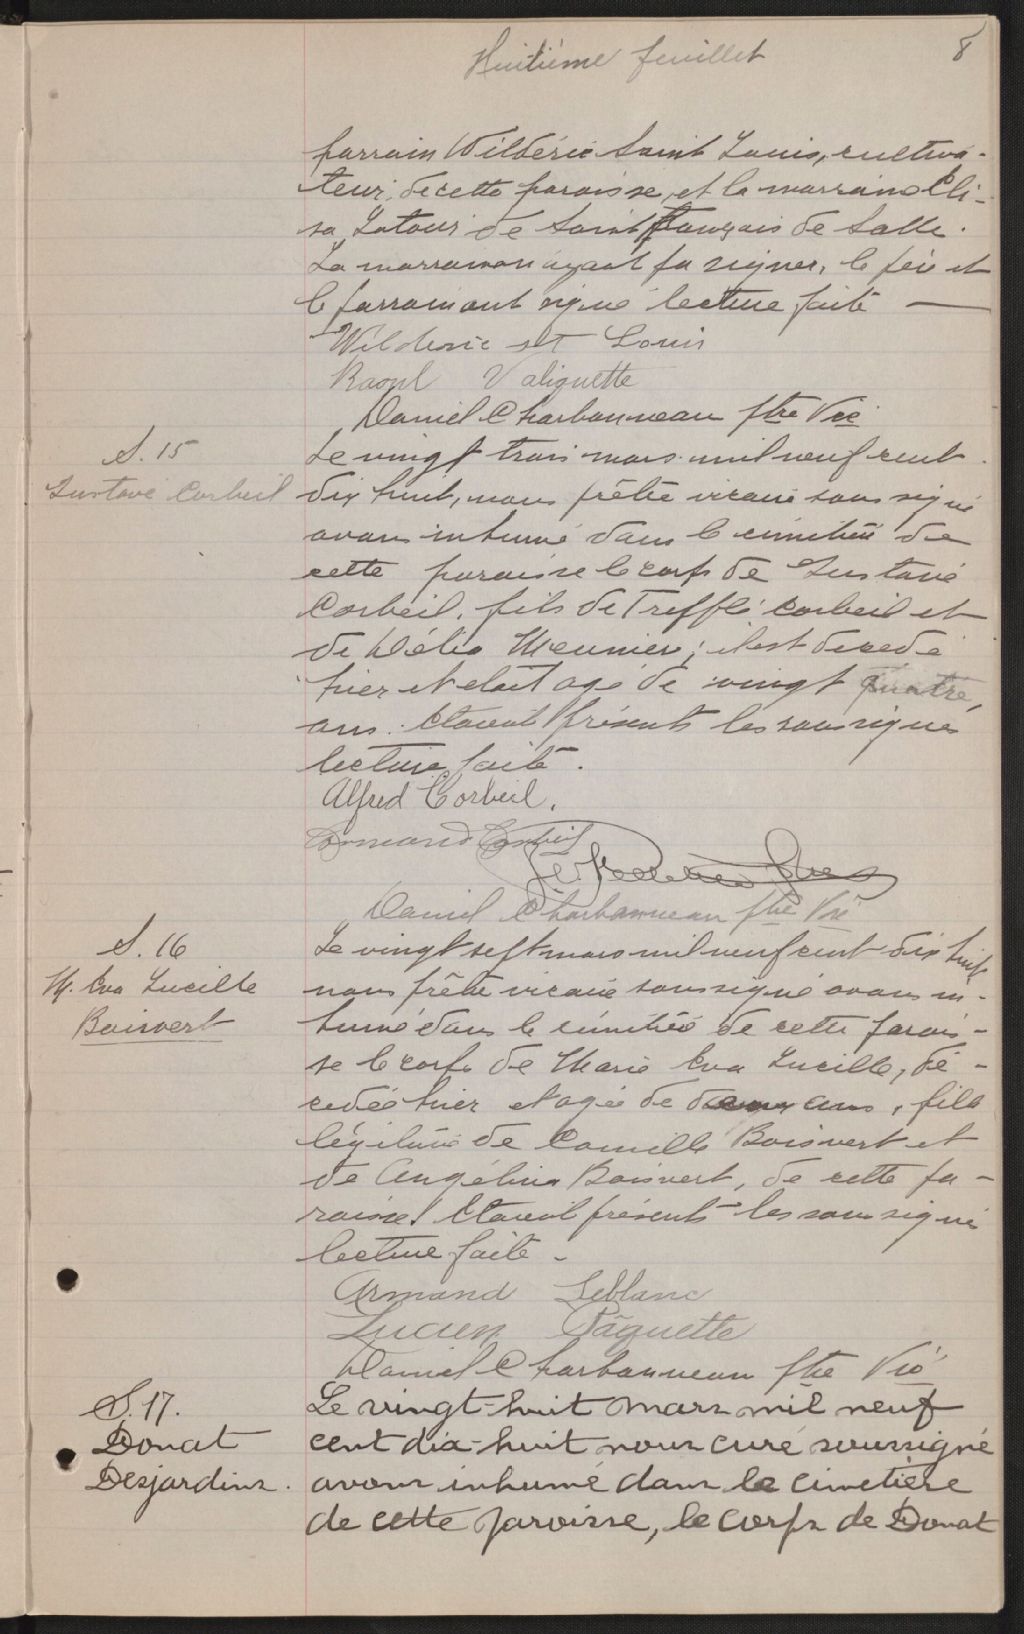 Huitième feuillet
8
parrain Wildéric Saint Louis, cultiva-
teur, de cette paroisse, et la marraine Eli-
sa Latour de Saint François de Salle.
La marraine n'ayant pu signer, le père et
le parrain ont signé lecture faite —
Wilderic st Louis
Raoul Valiquette
Daniel Charbonneau ptre Vic
S. 15
Gustave Corbeil
Le vingt trois mars mil neuf cent
dix huit, nous prêtre vicaire soussigné
avons inhumé dans le cimetière de
cette paroisse le corps de Gustave
Corbeil, fils de Trefflé Corbeil et
de Délia Meunier; il est décédé
hier et était agé de vingt quatre
ans. Etaient présents les soussignés
lecture faite.
Alfred Corbeil.
Armand Corbeil
ptre
Daniel Charbonneau ptre Vic
S. 16
M. Eva Lucille
Boisvert
Le vingt sept mars mil neuf cent dix huit
nous prêtre vicaire soussigné avons in-
humé dans le cimetière de cette parois-
se le corps de Marie Eva Lucille, dé-
cedée hier et agée de deux ans, fille
légitime de Camille Boisvert et
de Angélina Boisvert, de cette pa-
roisse. Etaient présents les soussignés
lecture faite -
Armand Leblanc
Lucien Pâquette
Daniel Charbonneau ptre Vic
S. 17.
Donat
Desjardins.
Le vingt-huit mars mil neuf
cent dix-huit nous curé soussigné
avons inhumé dans le cimetière
de cette paroisse, le corps de Donat